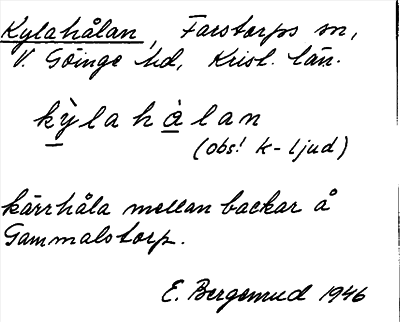 Kylahålan, Farstorps sn,
V. Göinge hd, Krist. län.
kỳlahàlan
(obs! k-ljud)
kärrhåla mellan backar å
Gammalstorp.
E. Bergsrud 1946